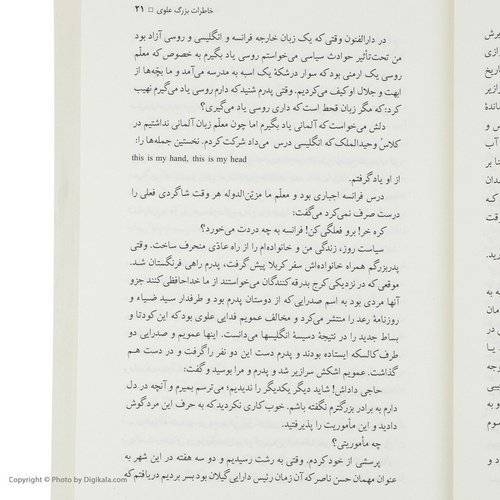 خاطرات بزرگ علوی □ ۲۱
در دارالفنون وقتی که یک زبان خارجه فرانسه و انگلیسی و روسی آزاد بود
من تحت‌تأثیر حوادث سیاسی می‌خواستم روسی یاد بگیرم به خصوص که معلّم
روسی یک ارمنی بود که سوار درشکهٔ یک اسبه به مدرسه می‌آمد و ما بچّه‌ها از
ابهت و جلال او کیف می‌کردیم. وقتی پدرم شنید که دارم روسی یاد می‌گیرم نهیب
کرد: که مگر زبان قحط است که داری روسی یاد می‌گیری؟
دلش می‌خواست که آلمانی یاد بگیرم اما چون معلّم زبان آلمانی نداشتیم در
کلاس وحیدالملک که انگلیسی درس می‌داد شرکت کردم. نخستین جمله‌ها را:
this is my hand, this is my head
از او یاد گرفتم.
درس فرانسه اجباری بود و معلّم ما مزیّن‌الدوله هر وقت شاگردی فعلی را
درست صرف نمی‌کرد می‌گفت:
کره خر! برو فعلگی کن! فرانسه به چه دردت می‌خورد؟
سیاست روز، زندگی من و خانواده‌ام را از راه عادّی منحرف ساخت. وقتی
پدربزرگم همراه خانواده‌اش سفر کربلا پیش گرفت، پدرم راهی فرنگستان شد.
موقعی که در نزدیکی کرج بدرقه‌کنندگان می‌خواستند از ما خداحافظی کنند جزو
آنها مردی بود به اسم صدرایی که از دوستان پدرم بود و طرفدار سید ضیاء و
روزنامهٔ رعد را منتشر می‌کرد و مخالف عمویم فدایی علوی بود که این کودتا و
بساط جدید را در نتیجهٔ دسیسهٔ انگلیسها می‌دانست. اینها عمویم و صدرایی دو
طرف کالسکه ایستاده بودند و پدرم دست این دو نفر را گرفت و در دست هم
گذاشت. عمویم اشکش سرازیر شد و پدرم و مرا بوسید و گفت:
حاجی داداش! شاید دیگر یکدیگر را ندیدیم؛ می‌ترسم بمیرم و آنچه در دل
دارم به برادر بزرگترم نگفته باشم. خوب کاری نکردید که به حرف این مرد گوش
دادید و این مأموریت را پذیرفتید.
چه مأموریتی؟
پرسشی از خود کردم. وقتی به رشت رسیدیم و دو سه هفته در این شهر به
عنوان مهمان حسن ناصر که آن زمان رئیس دارایی گیلان بود بسر بردیم دریافتم که
Copyright © Photo by Digikala.com